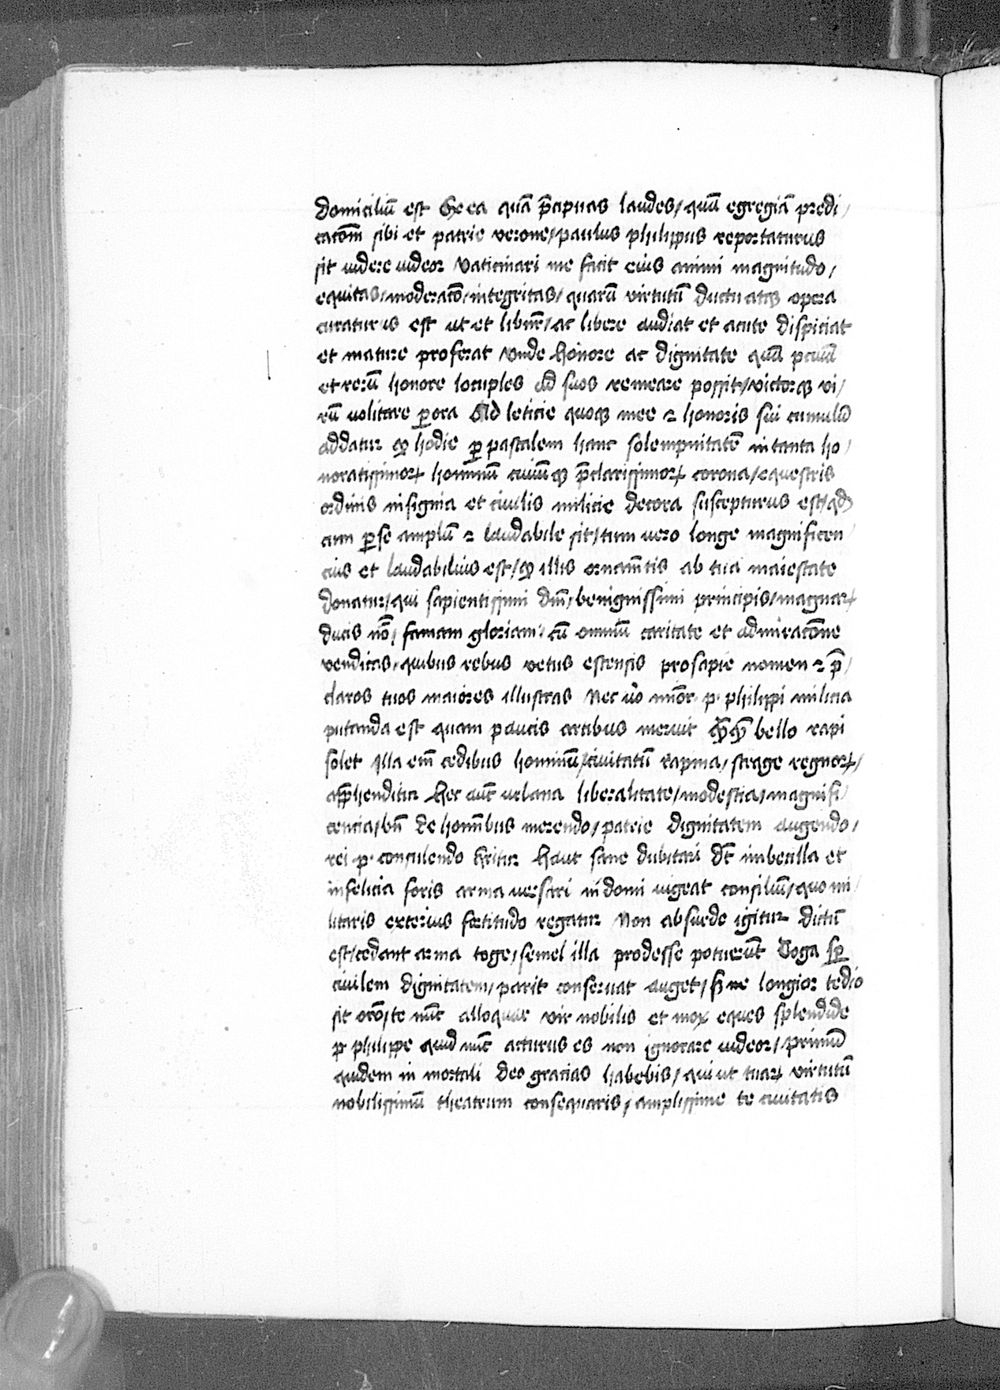 domiciliū est Ex ea quā p̄cipuas laudes / quā egregiā predi /
catōnē sibi et patrie verone / paulus philippus reportaturus
sit videre videor Vaticinari me facit eius animi magnitudo /
equitas / moderatō / integritas / quarū virtutū ductu atqꝫ opera
curaturus est ut et libent̄ / ac libere audiat et acute dispiciat
et mature proferat Unde honore ac dignitate quā
et rerū honore locuples ad suos remeare possit / victorqꝫ vi /
rū volitare ꝑ ora Ad leticie quoqꝫ mee ⁊ honoris sui cumulū
addatur ꝙ hodie ꝑ pastalem hanc solempnitatē in tanta ho /
noratissimoꝝ hominū ciuiūqꝫ p̄clarissimoꝝ corona / equestris
ordinis insignia et ciuilis milicie decora suscepturus est / qd
cum ꝑ se amplū ⁊ laudabile sit / tum vero longe magnificen
cius et laudabilius est / ꝙ illis ornam̄tis ab tua maiestate
donatur / qui sapientissimi dn̄i / benignissimi principis / magnaꝝ
ducis nō / famam gloriam / cū omniū caritate et admiracōne
vendicas / quibus rebus vetus estensis prosapie nomen ⁊ p̄ /
claros tuos maiores illustras Nec v̄o mīor p. philippi milicia
putanda est quam paucis artibus meruit ꝙ̄ꝙ̄ bello rapi
solet Illa em̄ cedibus hominū / ciuitatū rapina / strage regnoꝝ /
app̄henditur Hec aut̄ vrbana liberalitate / modestia / magnifi /
cencia / bn̄ de hom̄ibus merendo / patrie dignitatem augendo /
rei p. consulendo h̄ritur Haut sane dubitari dt̄ imbecilla et
infelicia foris arma versari ni domi vigeat consiliū / quo mi /
litaris exterius fortitudo regatur Non absurde igitur dictū
est / cedant arma toge / semel illa prodesse potuerūt Toga sp̄
ciuilem dignitatem / parit conseruat auget / sꝫ ne longior tedio
sit orō / te nūc alloquar vir nobilis et mox eques splendide
p. philippe quid nūc acturus es non ignorare videor / primū
quidem in mortali deo gracias habebis / qui ut tuaꝝ virtutū
nobilissimū theatrum consequaris / amplissime te ciuitatis